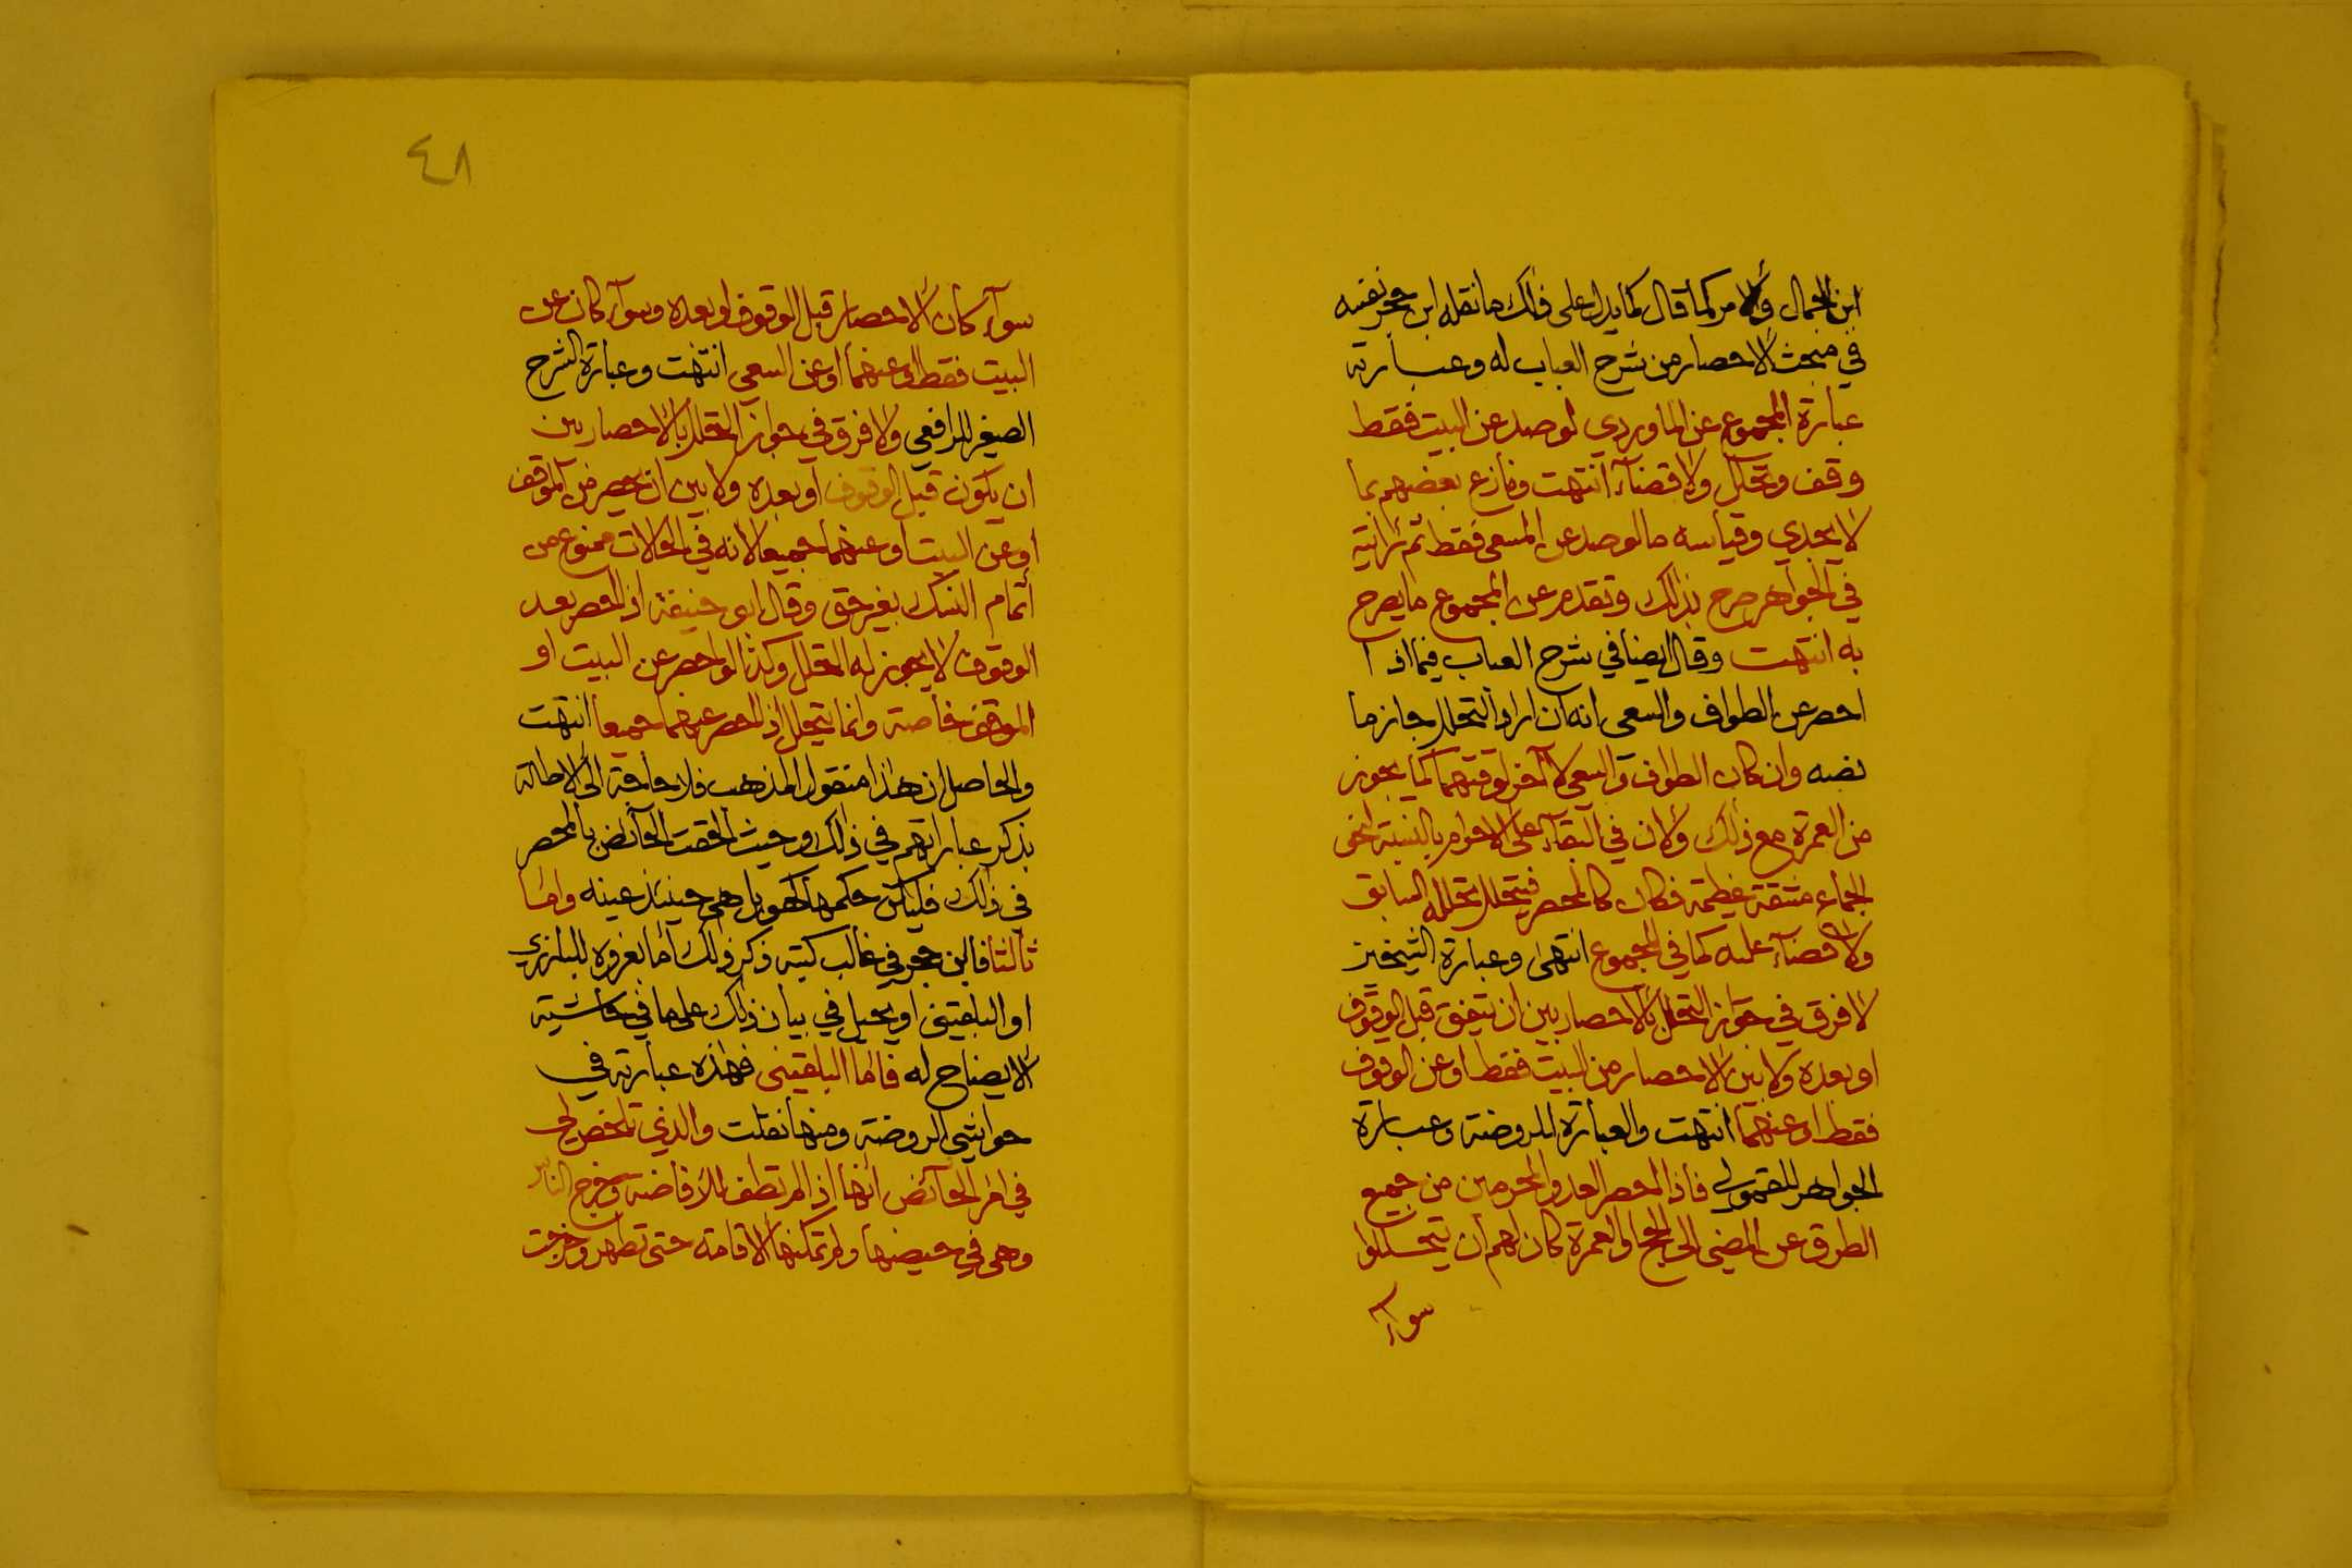 ابن الجمال والامر كما قال كما يدل على ذلك ما نقله ابن حجر نفسه
في مبحث الاحصار من شرح العباب له وعبارته
عبارة المجموع عن الماوردي لو صد عن البيت فقط
وقف وتحلل ولا قضآء انتهت ونازع بعضهم بما
لا يجدي وقياسه ما لو صد عن المسعى فقط ثم رايته
في الجواهر صرح بذلك وتقدم عن المجموع ما يصرح
به انتهت وقال ايضا في شرح العباب فيما اذا
احصر عن الطواف والسعي انه ان اراد التحلل جاز ما
نصه وان كان الطواف والسعي لا آخر لوقتهما كما يجوز
من العمرة مع ذلك ولان في البقآء على الاحرام بالنسبة لنحو
الجماع مشقة عظيمة فكان كالمحصر فيتحلل تحلله السابق
ولا قضآء عليه كما في المجموع انتهى وعبارة الشيخين
لا فرق في جواز التحلل بالاحصار بين ان يتفق قبل الوقوف
او بعده ولا بين الاحصار من البيت فقط او عن الوقوف
فقط او عنهما انتهت والعبارة للروضة وعبارة
الجواهر للقمولي فاذا احصر العدو المحرمين من جميع
الطرق عن المضي الى الحج او العمرة كان لهم ان يتحللوا
سوآء
٤٨
سوآء كان الاحصار قبل الوقوف او بعده وسوآء كان عن
البيت فقط او عنهما او عن السعي انتهت وعبارة الشرح
الصغير للرافعي ولا فرق في جواز التحلل بالاحصار بين
ان يكون قبل الوقوف او بعده ولا بين ان يحصر من الموقف
او عن البيت او عنهما جميعا لانه في الحالات ممنوع من
اتمام النسك بغير حق وقال ابو حنيفة اذا احصر بعد
الوقوف لا يجوز له التحلل وكذا لو احصر عن البيت او
الموقف خاصة وانما يتحلل اذا احصر عنهما جميعا انتهت
والحاصل ان هذا منقول المذهب فلا حاجة الى الاطالة
بذكر عباراتهم في ذلك وحيث الحقت الحآئض بالمحصر
في ذلك فليكن حكمها كهو بل هي حينئذ عينه واما
ثالثا فابن حجر في غالب كتبه ذكر ذلك اما بعزوه للبارزي
او البلقيني او يحيل في بيان ذلك على ما في حاشية
الايضاح له فاما البلقيني فهذه عبارته في
حواشي الروضة ومنها نقلت والذي تلخص لي
في امر الحآئض انها اذا لم تطف للافاضة وخرج الناس
وهي في حيضها ولم تمكنها الاقامة حتى تطهر وخرجت